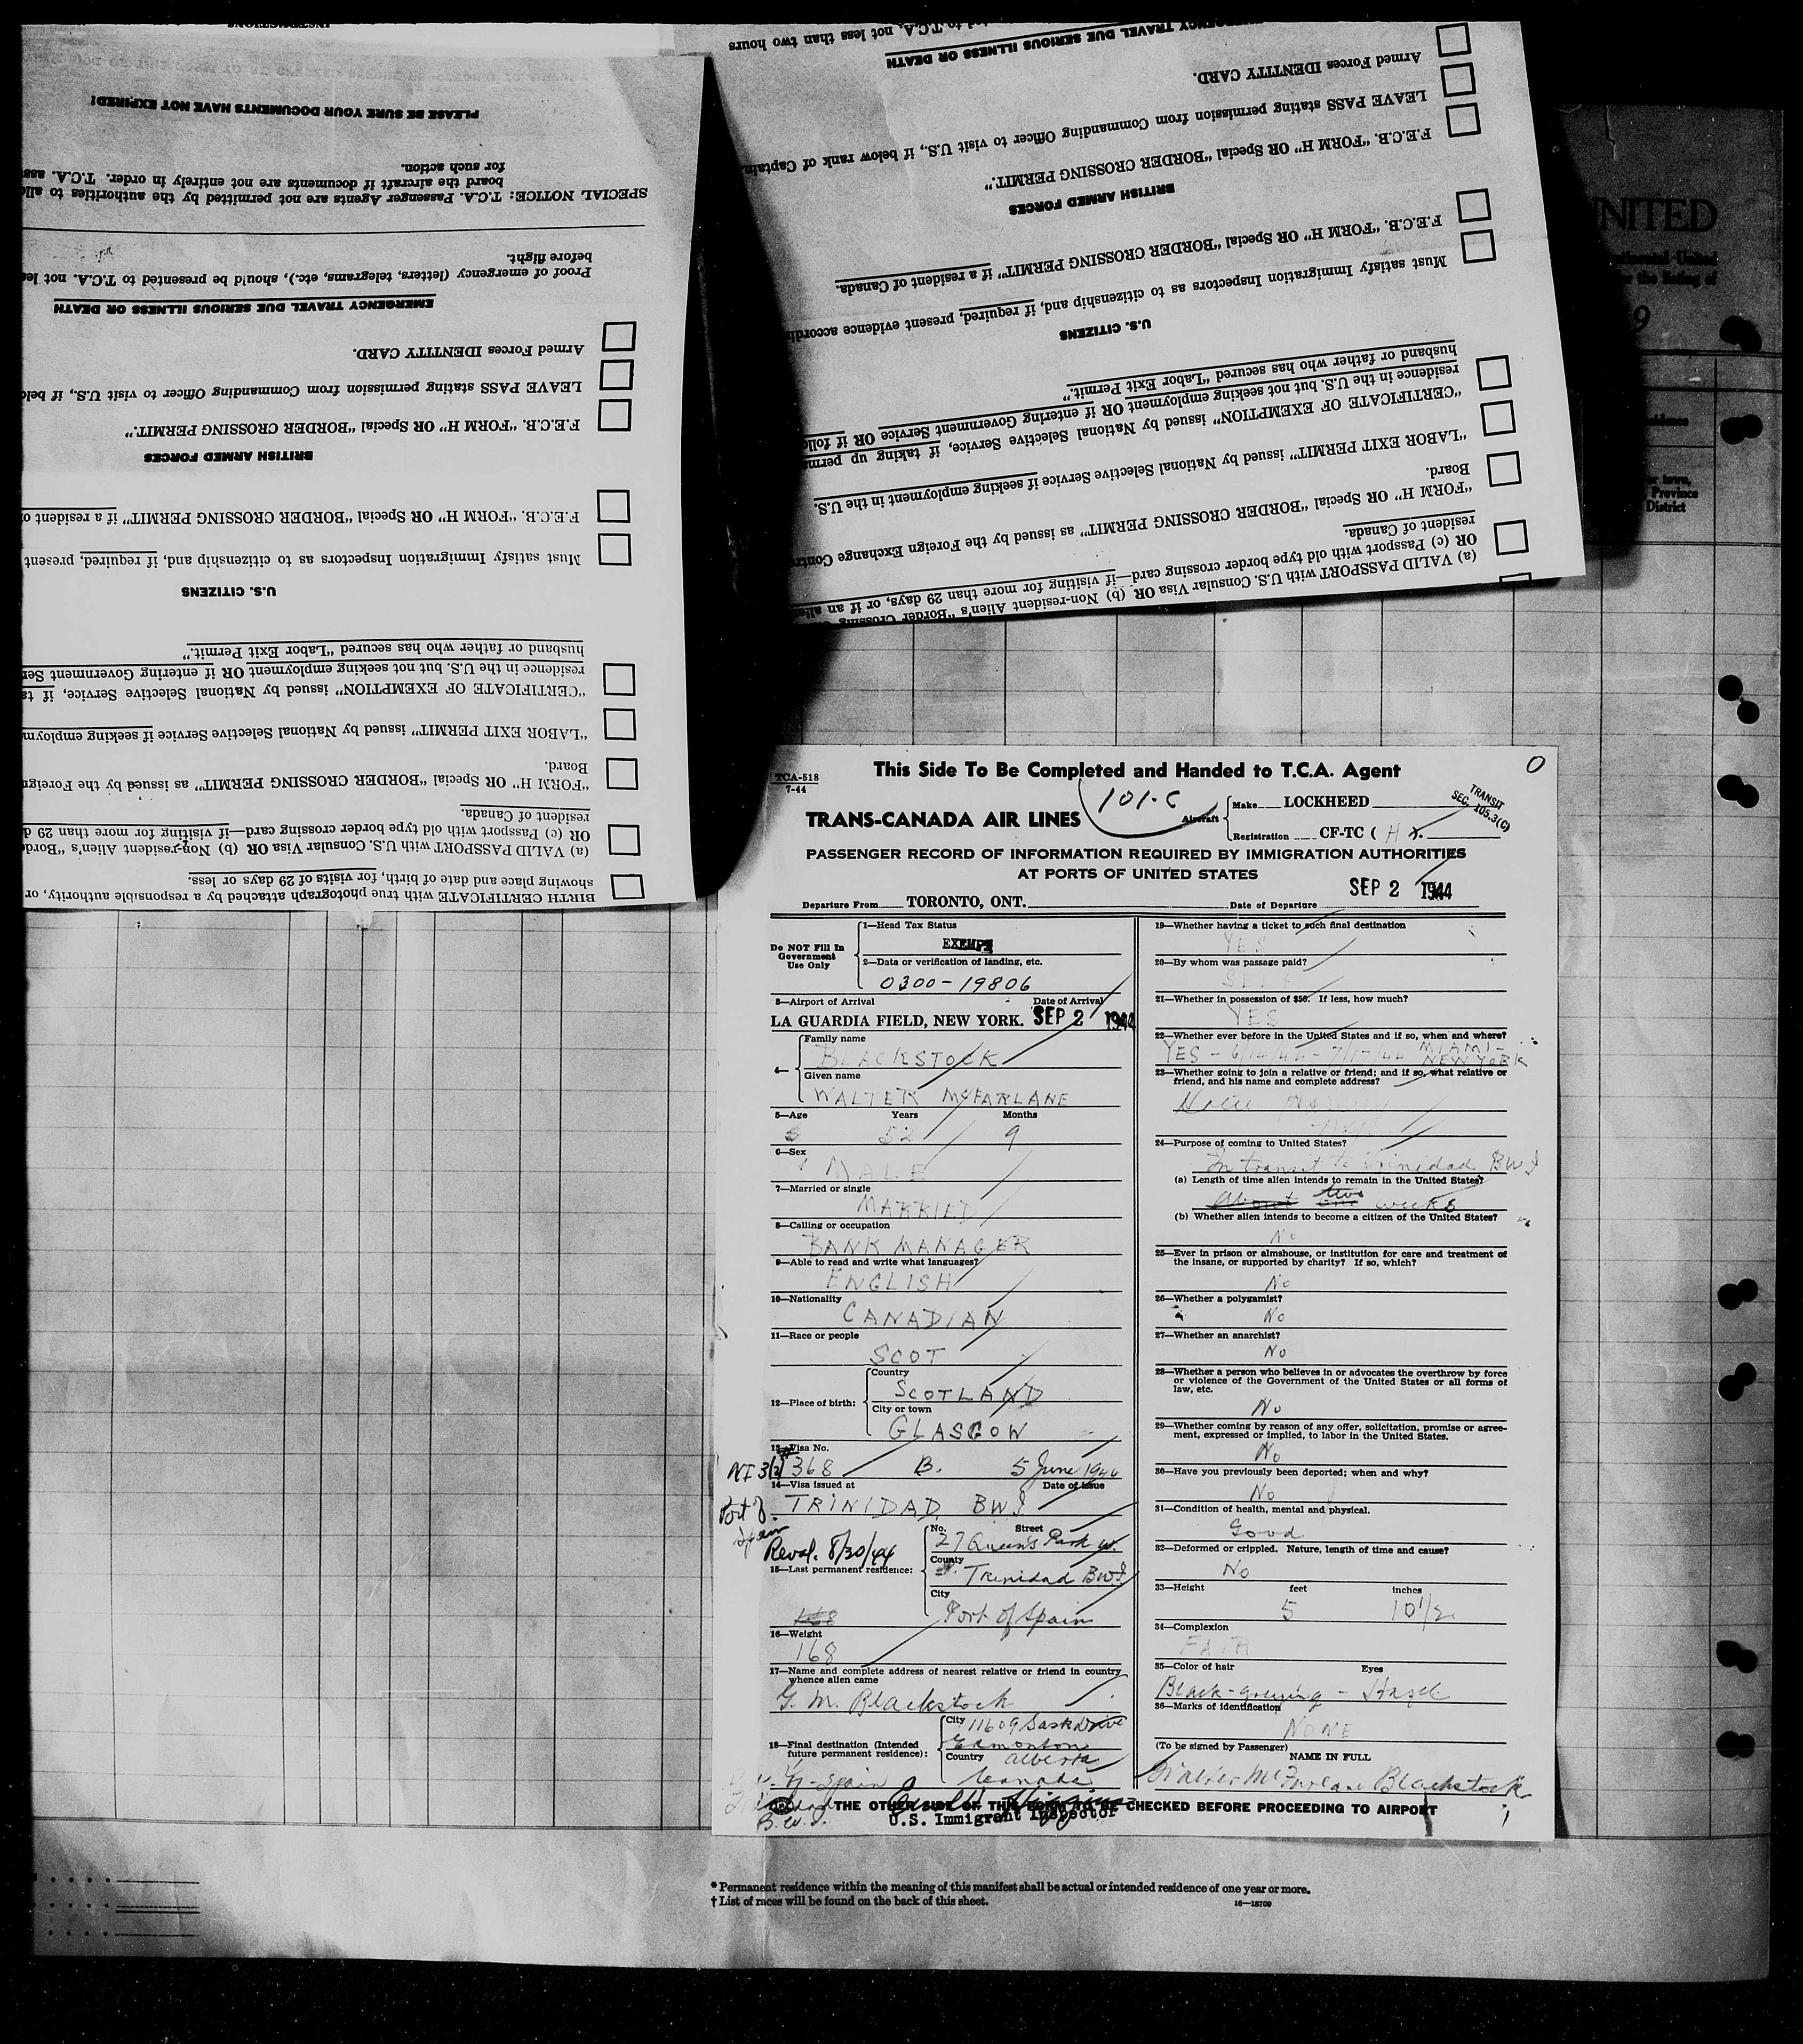 INSTRUCTIONS
PLEASE BE SURE YOUR DOCUMENTS HAVE NOT EXPIRED!
SPECIAL NOTICE: T.C.A. Passenger Agents are not permitted by the authorities to
board the aircraft if documents are not entirely in order. T.C.A.
for such action.
Proof of emergency (letters, telegrams, etc.), should be presented to T.C.A. not
before flight.
EMERGENCY TRAVEL DUE SERIOUS ILLNESS OR DEATH
Armed Forces IDENTITY CARD.
LEAVE PASS stating permission from Commanding Officer to visit U.S., if
F.E.C.B. "FORM H" OR Special "BORDER CROSSING PERMIT."
BRITISH ARMED FORCES
F.E.C.B. "FORM H" OR Special "BORDER CROSSING PERMIT" if a resident
Must satisfy Immigration Inspectors as to citizenship and, if required, present
U.S. CITIZENS
husband or father who has secured "Labor Exit Permit."
residence in the U.S. but not seeking employment OR if entering Government
"CERTIFICATE OF EXEMPTION" issued by National Selective Service, if
"LABOR EXIT PERMIT" issued by National Selective Service if seeking
Board.
"FORM H" OR Special "BORDER CROSSING PERMIT" as issued by the
resident of Canada.
OR (c) Passport with old type border crossing card—if visiting for more than 29
(a) VALID PASSPORT with U.S. Consular Visa OR (b) Non-resident Alien's
showing place and date of birth, for visits of 29 days or less.
BIRTH CERTIFICATE with true photograph attached by a responsible authority, or
to T.C.A. not less than two hours
TRAVEL DUE SERIOUS ILLNESS OR DEATH
Armed Forces IDENTITY CARD.
LEAVE PASS stating permission from Commanding Officer to visit U.S., if below rank of Captain.
F.E.C.B. "FORM H" OR Special "BORDER CROSSING PERMIT."
BRITISH ARMED FORCES
F.E.C.B. "FORM H" OR Special "BORDER CROSSING PERMIT" if a resident of Canada.
Must satisfy Immigration Inspectors as to citizenship and, if required, present evidence
U.S. CITIZENS
husband or father who has secured "Labor Exit Permit."
residence in the U.S. but not seeking employment OR if entering Government Service OR if
"CERTIFICATE OF EXEMPTION" issued by National Selective Service, if taking up
"LABOR EXIT PERMIT" issued by National Selective Service if seeking employment in the U.S.
Board.
"FORM H" OR Special "BORDER CROSSING PERMIT" as issued by the Foreign Exchange
resident of Canada.
OR (c) Passport with old type border crossing card—if visiting for more than 29 days, or if an
(a) VALID PASSPORT with U.S. Consular Visa OR (b) Non-resident Alien's "Border Crossing
District
Province
TCA-518
7-44
This Side To Be Completed and Handed to T.C.A. Agent
O
101-C
TRANS-CANADA AIR LINES
Aircraft
Make LOCKHEED
Registration CF-TC ( H ).
TRANSIT
SEC. 105.3(C)
PASSENGER RECORD OF INFORMATION REQUIRED BY IMMIGRATION AUTHORITIES
AT PORTS OF UNITED STATES
Departure From TORONTO, ONT. Date of Departure SEP 2 1944
Do NOT Fill In
Government
Use Only
1—Head Tax Status
EXEMPT
2—Data or verification of landing, etc.
0300-19806
3—Airport of Arrival Date of Arrival
LA GUARDIA FIELD, NEW YORK. SEP 2 1944
4—
Family name
BLACKSTOCK
Given name
WALTER McFARLANE
5—Age Years Months
52 9
6—Sex
MALE
7—Married or single
MARRIED
8—Calling or occupation
BANK MANAGER
9—Able to read and write what languages?
ENGLISH
10—Nationality
CANADIAN
11—Race or people
SCOT
12—Place of birth:
Country
SCOTLAND
City or town
GLASGOW
13—Visa No.
368 B. 5 June 1944
14—Visa issued at Date of issue
TRINIDAD BWI
Port of
Spain
Reval. 8/30/44
15—Last permanent residence:
No. Street
27 Queen's Park W.
County
Trinidad BWI
City
Port of Spain
168
16—Weight
168
17—Name and complete address of nearest relative or friend in country
whence alien came
G. M. Blackstock
City 11609 Sask Drive
Edmonton
18—Final destination (Intended
future permanent residence):
Country Alberta
Canada
Spain
Trinidad
B.W.I.
THE OTHER SIDE OF THIS FORM TO BE CHECKED BEFORE PROCEEDING TO AIRPORT
U.S. Immigrant Inspector
19—Whether having a ticket to such final destination
YES
20—By whom was passage paid?
SELF
21—Whether in possession of $50. If less, how much?
YES
22—Whether ever before in the United States and if so, when and where?
YES - MIAMI-
NEW YORK
23—Whether going to join a relative or friend; and if so, what relative or
friend, and his name and complete address?
24—Purpose of coming to United States?
In transit to Trinidad BWI
(a) Length of time alien intends to remain in the United States?
About one two weeks
(b) Whether alien intends to become a citizen of the United States?
No
25—Ever in prison or almshouse, or institution for care and treatment of
the insane, or supported by charity? If so, which?
No
26—Whether a polygamist?
No
27—Whether an anarchist?
No
28—Whether a person who believes in or advocates the overthrow by force
or violence of the Government of the United States or all forms of
law, etc.
No
29—Whether coming by reason of any offer, solicitation, promise or agree-
ment, expressed or implied, to labor in the United States.
No
30—Have you previously been deported; when and why?
No
31—Condition of health, mental and physical.
Good
32—Deformed or crippled. Nature, length of time and cause?
No
33—Height feet inches
5 10 1/2
34—Complexion
FAIR
35—Color of hair Eyes
Black-greying - Hazel
36—Marks of identification
NONE
(To be signed by Passenger)
NAME IN FULL
Walter McFarlane Blackstock
* Permanent residence within the meaning of this manifest shall be actual or intended residence of one year or more.
† List of races will be found on the back of this sheet.
16—18709